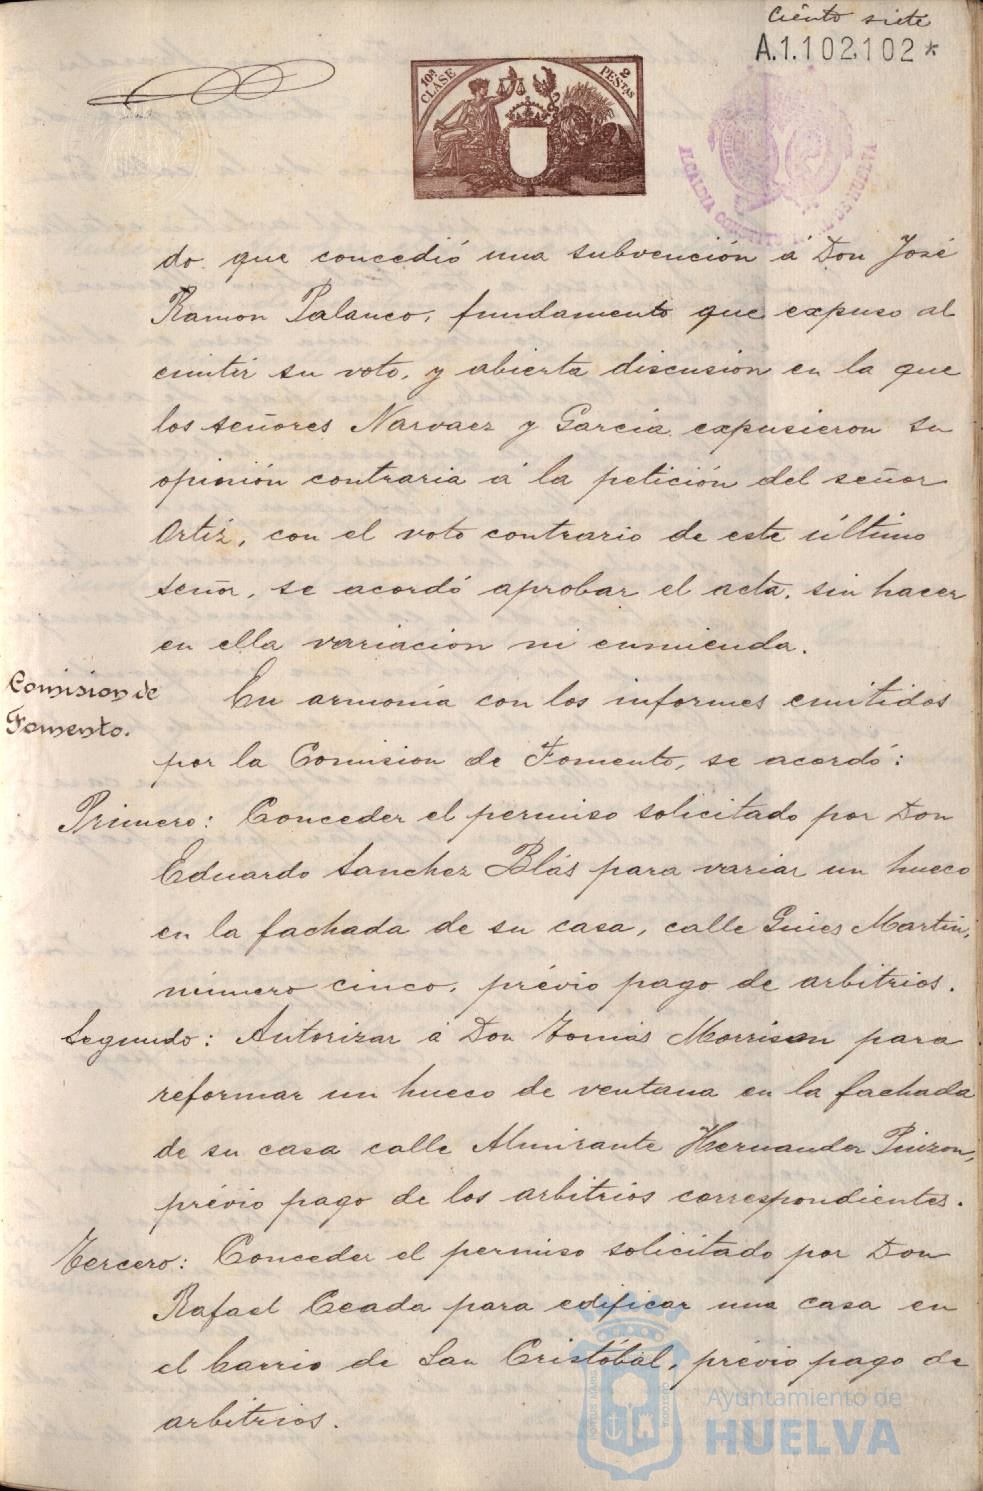 Ciento siete
A.1.102.102*
10ª CLASE
2 PESETAS
ALCALDIA CONSTITU HUELVA
do que concedió una subvención á Don José
Ramon Palanco, fundamento que expuso al
emitir su voto, y abierta discusion en la que
los señores Narvaez y Garcia expusieron su
opinión contraria á la petición del señor
Ortiz, con el voto contrario de este último
señor, se acordó aprobar el acta, sin hacer
en ella variacion ni enmienda.
Comision de
Fomento.
En armonía con los informes emitidos
por la Comision de Fomento, se acordó:
Primero: Conceder el permiso solicitado por Don
Eduardo Sanchez Blás para variar un hueco
en la fachada de su casa, calle Ginés Martin,
número cinco, prévio pago de arbitrios.
Segundo: Autorizar á Don Tomás Morrison para
reformar un hueco de ventana en la fachada
de su casa calle Almirante Hernandez Pinzon,
prévio pago de los arbitrios correspondientes.
Tercero: Conceder el permiso solicitado por Don
Rafael Ceada para edificar una casa en
el barrio de San Cristóbal, prévio pago de
arbitrios.
Ayuntamiento de
HUELVA